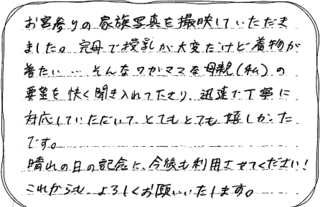 お宮参りの家族写真を撮映していただき
ました。完母で授乳が大変だけど着物が
着たい…そんなワガママな母親(私)の
要望を快く聞き入れて下さり、迅速で丁寧に
対応していただいて、とてもとても嬉しかった
です。
晴れの日の記念に、今後も利用させてください!
これからも、よろしくお願いいたします。